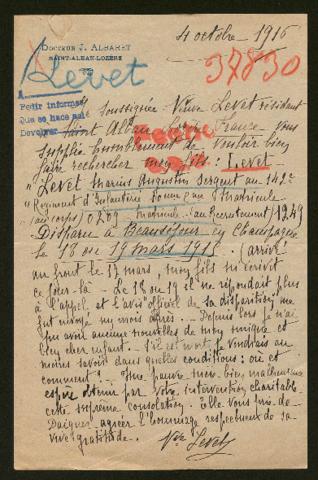 4 octobre 1915
DOCTEUR J. ALBARET
SAINT-ALBAN-LOZÈRE
Levet
37830
Pedir informes
Que se hace así
Devolver
Je soussignée Veuve Levet résidant
Saint Alban France vous
supplie humblement de vouloir bien
faire rechercher mon fils : Levet
"Levet Marius Augustin Sergent au 142e
"Régiment d'Infanterie Matricule
(au corps) 0209 Matricule (au Recrutement) 1249
Disparu à Beauséjour en Champagne
le 18 ou 19 mars 1915. (arrivé
au front le 17 mars, mon fils m'écrivit
ce jour-là. Le 18 ou 19 il ne répondait plus
à l'appel et l'avis officiel de sa disparition me
fut envoyé un mois après. Depuis lors je n'ai
pu avoir aucune nouvelles de mon unique et
bien cher enfant. S'il est mort je voudrais au
moins savoir dans quelles conditions : où et
comment. Une pauvre mère bien malheureuse
espère obtenir par votre intervention charitable
cette suprême consolation. Elle vous prie de
Daigner agréer l'hommage respectueux de sa
vive gratitude. Vve Levet